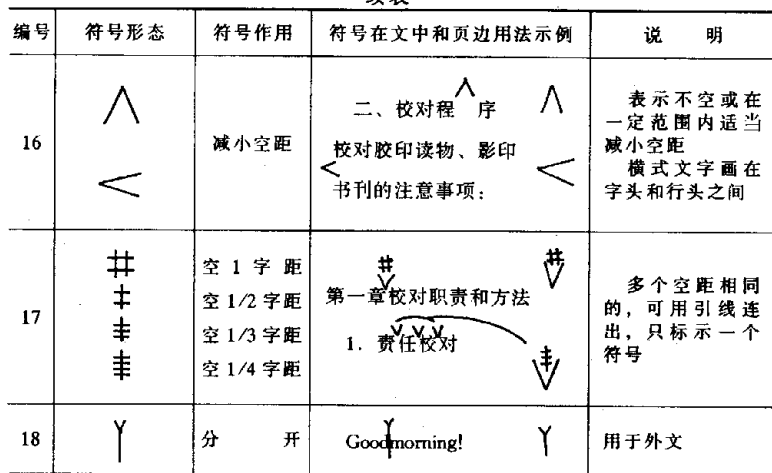 续表
编号 符号形态 符号作用 符号在文中和页边用法示例 说 明
16 减小空距
二、校对程 序
校对胶印读物、影印
书刊的注意事项:
表示不空或在
一定范围内适当
减小空距
横式文字画在
字头和行头之间
17
空 1 字 距
空 1/2 字距
空 1/3 字距
空 1/4 字距
第一章校对职责和方法
1. 责任校对
多个空距相同
的,可用引线连
出,只标示一个
符号
18 分 开 Goodmorning! 用于外文